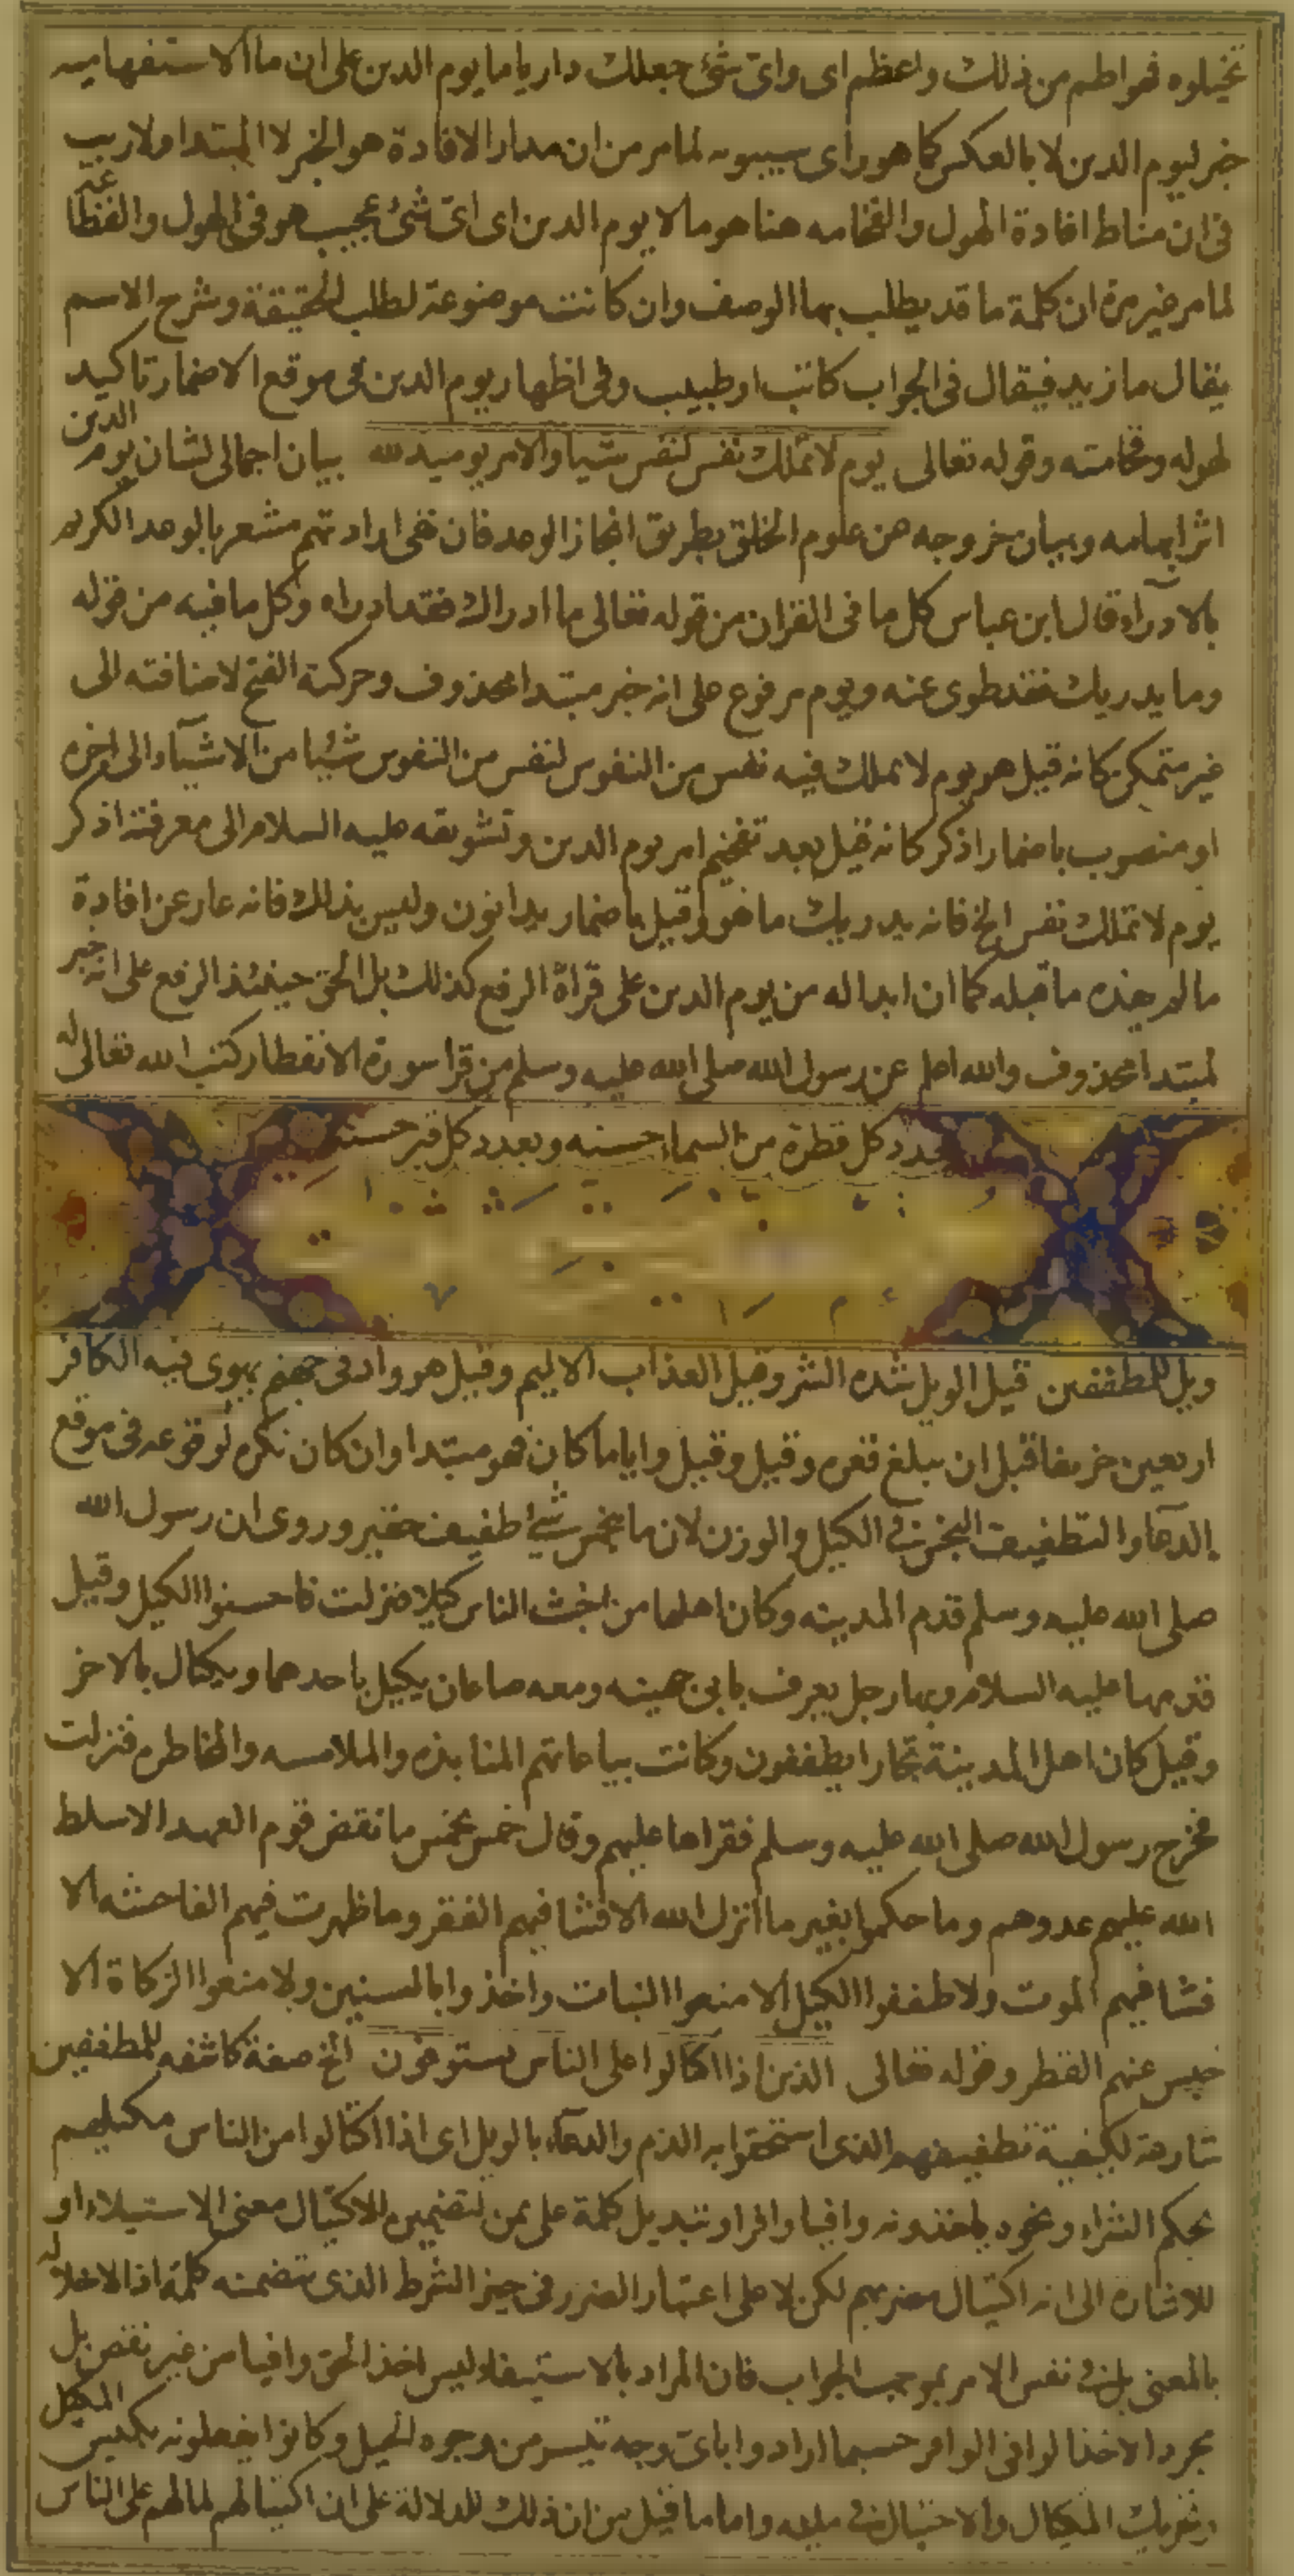 تخيلوه فهو اطم من ذلك واعظم اى واى شئ جعلك داريا ما يوم الدين على ان ما الاستفهاميه
خبر ليوم الدين لا بالعكس كما هو راى سيبويه لما مر من ان مدار الافادة هو الخبر لا المبتدا ولا ريب
فى ان مناط افادة الهول والفخامه هنا هو ما لا يوم الدين اى اى شئ عجيب هو فى الهول والفظاعة
لما مر غير مرة ان كلمة ما قد يطلب بها الوصف وان كانت موضوعة لطلب الحقيقة وشرح الاسم
يقال ما زيد فيقال فى الجواب كاتب او طبيب وفى اظهار يوم الدين فى موقع الاضمار تاكيد
لهوله وفخامته وقوله تعالى يوم لا تملك نفس لنفس شيا والامر يوميد لله بيان اجمالى لشان يوم الدين
اثر ابهامه وبيان خروجه عن علوم الخلق بطريق انجاز الوعد فان نفى ادراد تهم مشعر بالوعد الكريم
بالادرآء قال ابن عباس كل ما فى القران من قوله تعالى ما ادراك فقد ادراه وكل ما فيه من قوله
وما يدريك فقد طوى عنه ويوم مرفوع على انه خبر مبتدا محذوف وحركته الفتح لاضافته الى
غير متمكن كانه قيل هو يوم لا يملك فيه نفس من النفوس لنفس من النفوس شيئا من الاشيآء الى اخره
او منصوب باضمار اذكر كانه قيل بعد تفخيم امر يوم الدين وتشويقه عليه السلام الى معرفته اذكر
يوم لا تملك نفس الخ فانه يدريك ما هو وقيل باضمار يدانون وليس بذلك فانه عار عن افادة
ما لم يفده ما قبله كما ان ابداله من يوم الدين على قرآة الرفع كذلك بل الحق حينئذ الرفع على انه خبر
لمبتدا محذوف والله اعلم عن رسول الله صلى الله عليه وسلم من قرا سورة الانفطار كتب الله تعالى له
بعدد كل قطرة من السماء حسنه وبعدد كل قبر حسنه
ويل للمطففين قيل الويل شده الشر وقيل العذاب الاليم وقيل هو واد فى جهنم يهوى فيه الكافر
اربعين خريفا قبل ان يبلغ قعره وقيل وقيل وايا ما كان فهو مبتدا وان كان نكره لوقوعه فى موقع
الدعآ والتطفيف البخس فى الكيل والوزن لان ما يبخس شئ طفيف حقير وروى ان رسول الله
صلى الله عليه وسلم قدم المدينه وكان اهلها من اخبث الناس كيلا فنزلت فاحسنوا الكيل وقيل
قدمها عليه السلام وبها رجل يعرف بابى جهينه ومعه صاعان يكيل باحدهما ويكتال بالاخر
وقيل كان اهل المدينة تجارا يطففون وكانت بياعاتهم المنابذه والملامسه والمخاطره فنزلت
فخرج رسول الله صلى الله عليه وسلم فقراها عليهم وقال خمس بخمس ما نقض قوم العهد الا سلط
الله عليهم عدوهم وما حكموا بغير ما انزل الله الا فشا فيهم الفقر وما ظهرت فيهم الفاحشه الا
فشا فيهم الموت ولا طففوا الكيل الا منعوا النبات واخذوا بالسنين ولا منعوا الزكاة الا
حبس عنهم القطر وقوله تعالى الذين اذا اكتالوا على الناس يستوفون الخ صفة كاشفه للمطففين
شارحة لكيفية تطفيفهم الذى استحقوا به الذم والدعآء بالويل اى اذا اكتالوا من الناس مكيلهم
بحكم الشراء ونحوه ياخذونه وافيا وافرا وتبديل كلمة على بمن لتضمين الاكتيال معنى الاستيلاء او
للاشاره الى انه اكتيال مضر بهم لكن لا على اعتبار الضرر فى حيز الشرط الذى يتضمنه كلمة اذا لاخلاله
بالمعنى بل فى نفس الامر بموجب الجواب فان المراد بالاستيفاء ليس اخذ الحق وافيا من غير نقص بل
مجرد الاخذ الوافى الوافر حسبما ارادوا باى وجه تيسر من وجوه الحيل وكانوا يفعلونه بكبس المكيل
وتحريك المكيال والاحتيال فى ملئه واما ما قيل من ان ذلك للدلالة على ان اكتيالهم لمالهم على الناس